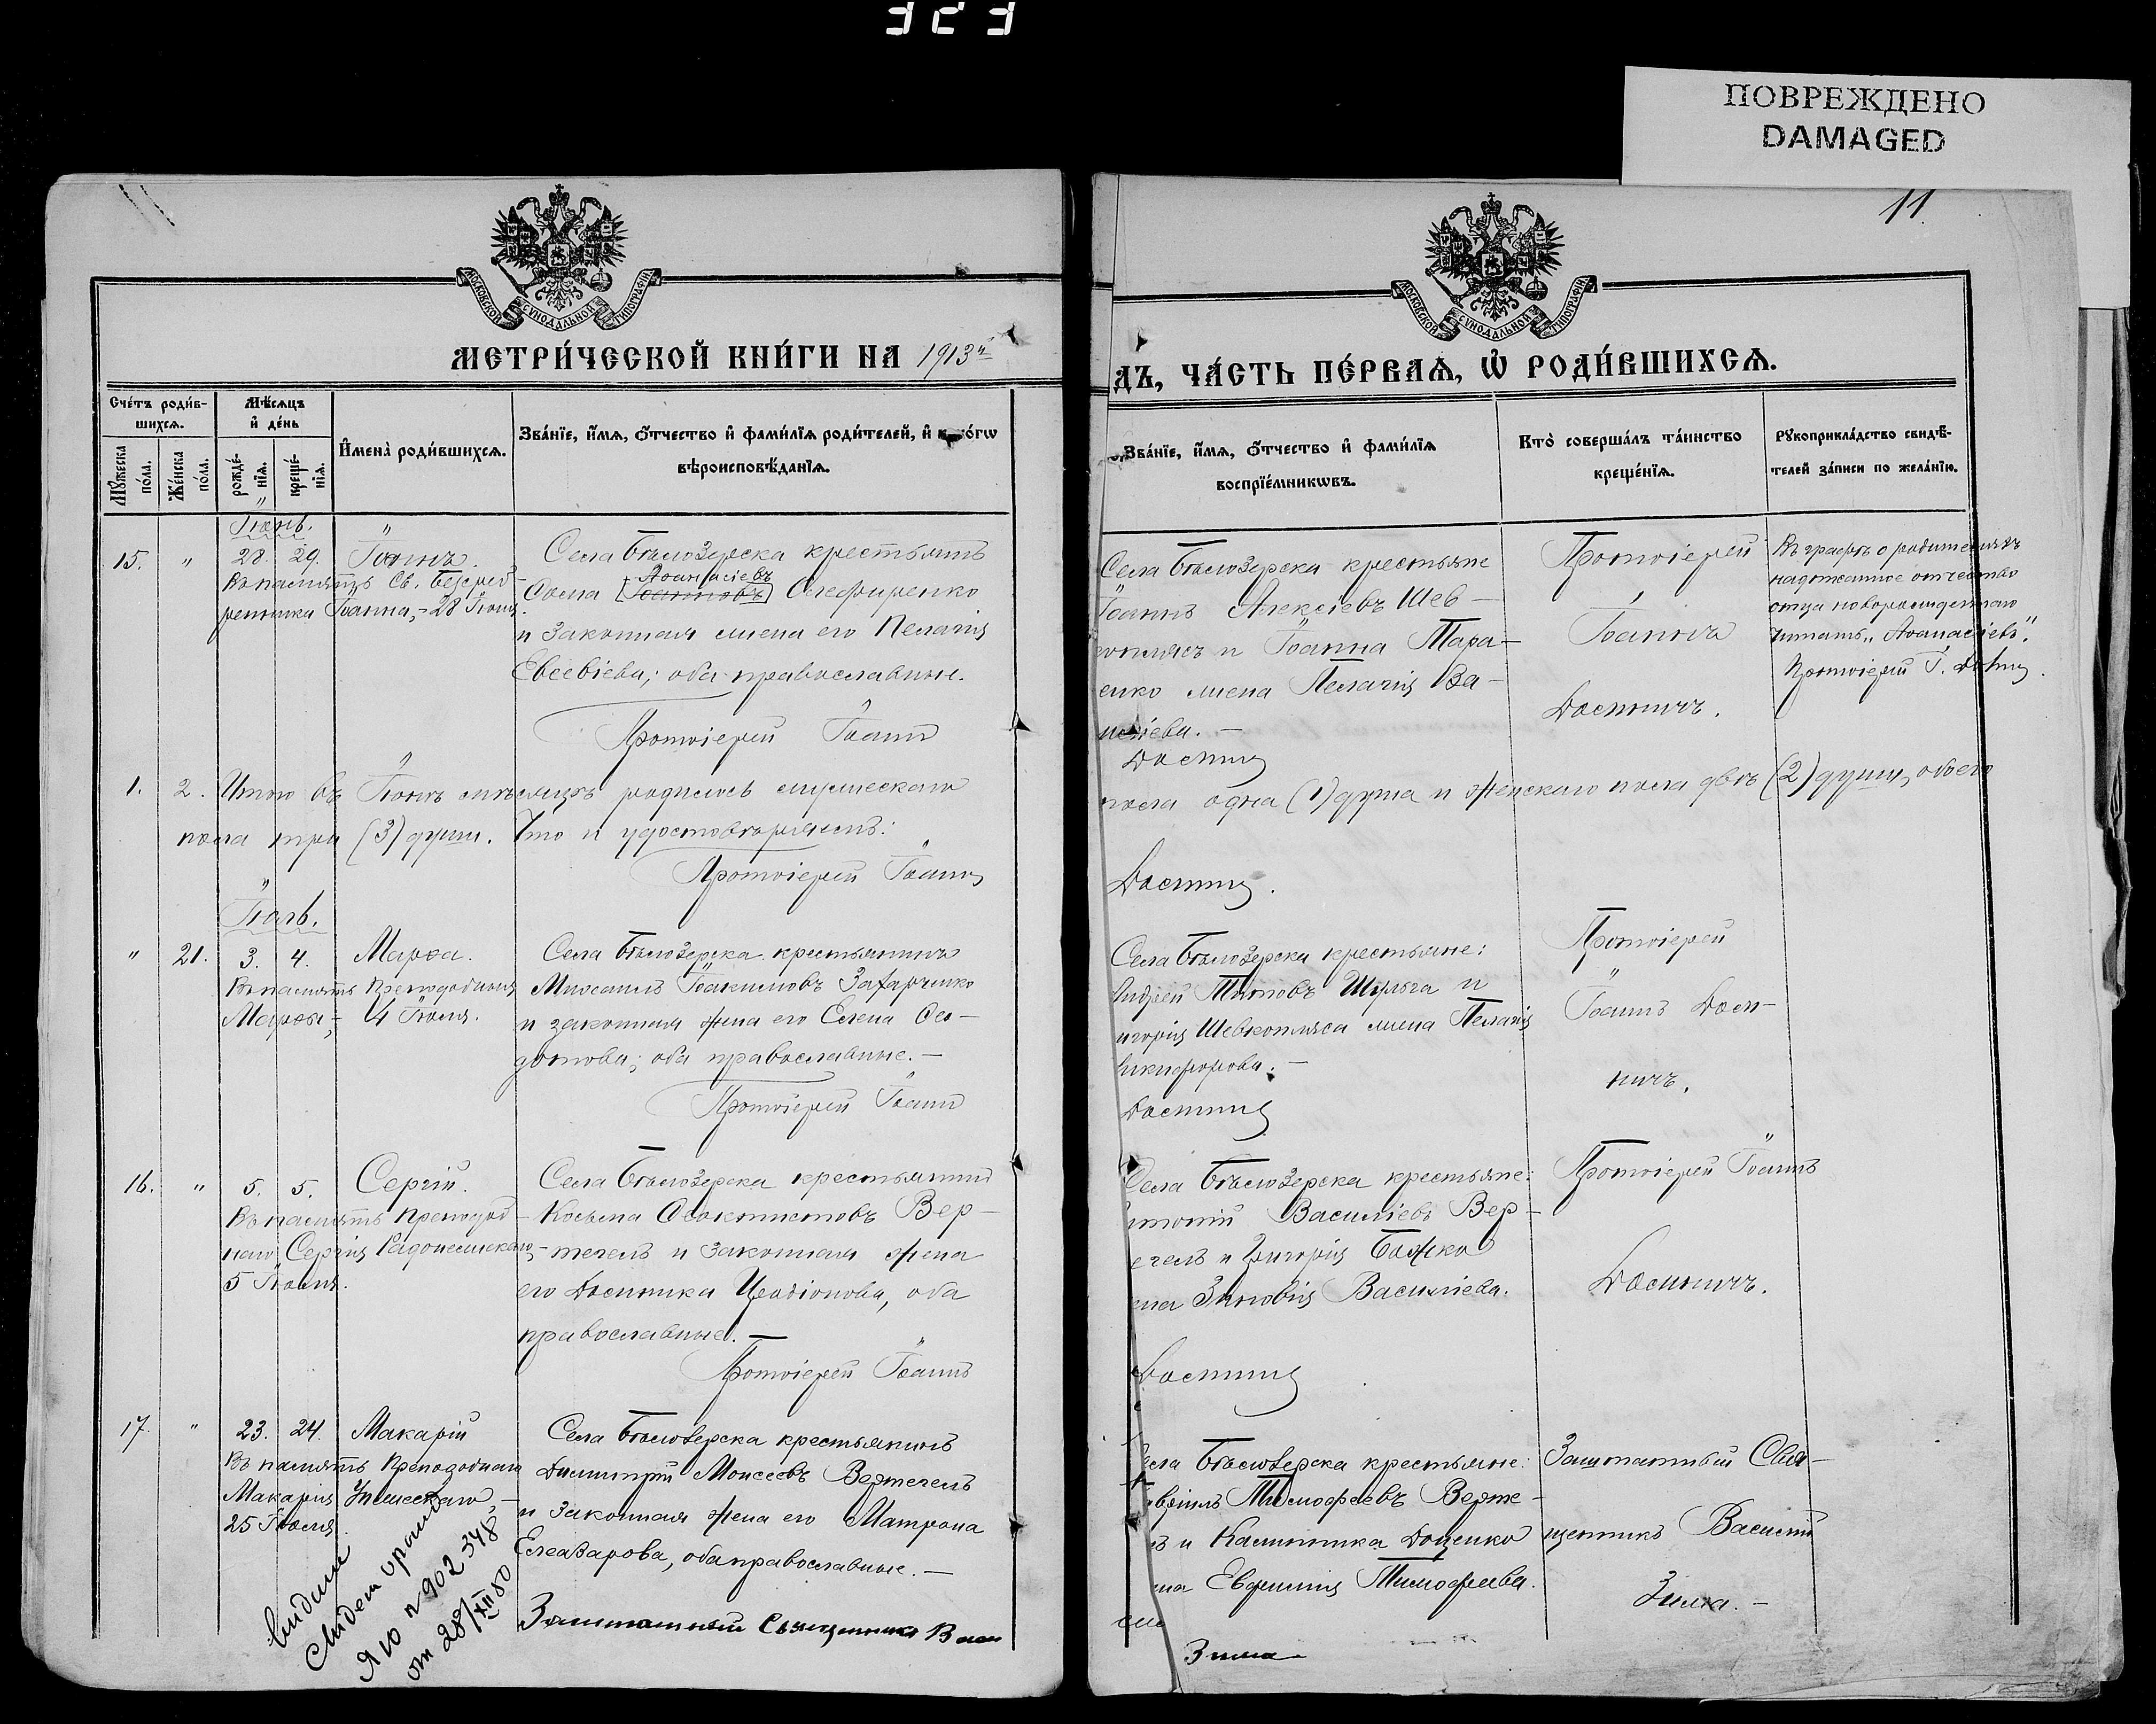 323
ПОВРЕЖДЕНО
DAMAGED
11
МОСКОВСКОЙ СѴНОДАЛЬНОЙ ТИПОГРАФІИ
МОСКОВСКОЙ СѴНОДАЛЬНОЙ ТИПОГРАФІИ
МЕТРИ́ЧЕСКОЙ КНИ́ГИ НА 1913й
ДЪ, ЧА́СТЬ ПЕ́РВАѦ, Ѡ҆ РОДИ́ВШИХСѦ.
Сче́тъ роди́в-
шихсѧ.
Мꙋ́жеска по́ла.
Же́нска по́ла.
Мѣ́сѧцъ
и҆ де́нь
рожде́-
нїѧ.
креще́-
нїѧ.
И҆мена̀ роди́вшихсѧ.
Зва́нїе, и҆́мѧ, ѻ҆́тчество и҆ фами́лїѧ роди́телей, и҆ ко́гѡ
вѣроисповѣ́данїѧ.
Зва́нїе, и҆́мѧ, ѻ҆́тчество и҆ фами́лїѧ
воспрїе́мникѡвъ.
Кто̀ соверша́лъ та́инство
креще́нїѧ.
Рꙋкоприкла́дство свидѣ́-
телей за́писи по жела́нїю.
Іюнь.
15. " 28. 29. Іоаннъ.
Въ память Св. Безсреб-
реника Іоанна, - 28 Іюня.
Села Бѣлозерска крестьянинъ
Аѳанасіевъ
Сисой
Олефиренко
и законная жена его Пелагія
Евсевіева; оба православные.
Протоіерей Іоанн
Села Бѣлозерска крестьяне
Іоаннъ Алексіевъ Шев-
коплясъ и Іоанна Тара-
енко жена Пелагія Ва-
силіева. -
Доснич
Протоіерей
Іоаннъ
Досничъ.
Въ графѣ о родителяхъ
надписанное отчество
отца новорожденнаго
читать "Аѳанасіевъ".
Протоіерей І. Досни
1. 2. Итого въ Іюнѣ мѣсяцѣ родилось мужескаго
пола одна (1) душа и женскаго пола двѣ (2) души, обоего
пола три (3) души. Что и удостовѣряемъ:
Протоіерей Іоаннъ
Доснич.
Іюль.
" 21. 3. 4. Марѳа.
Въ память Преподобныя
Марѳы, - 4 Іюля.
Села Бѣлозерска крестьянинъ
Михаилъ Іоакимовъ Захарченко
и законная жена его Елена Ѳео-
дотова; оба православные. -
Протоіерей Іоанн
Села Бѣлозерска крестьяне:
Андрей Титовъ Шульга и
игорія Шевкопляса жена Пелагія
Никифорова. -
Доснич
Протоіерей
Іоаннъ Дос-
ничъ.
16. " 5. 5. Сергій.
Въ память Преподоб-
наго Сергія Радонежскаго, -
5 Іюля.
Села Бѣлозерска крестьянинъ
Косьма Ѳеоктистовъ Вер-
течелъ и законная жена
его Домника Иродіонова, оба
православные. -
Протоіерей Іоаннъ
Села Бѣлозерска крестьяне:
нтоній Василіевъ Вер-
ечелъ и Григорія Бажка
ена Зиновія Василіева.
Доснич
Протоіерей Іоаннъ
Досничъ.
17. " 23. 24. Макарій
Въ память Преподобнаго
Макарія Желтоводскаго, -
25 Іюля.
Села Бѣлозерска крестьянинъ
Димитрій Моисеевъ Вертечелъ
и законная жена его Матрона
Елеазарова, оба православные. -
Заштатный Священникъ Васи
Села Бѣлозерска крестьяне:
авріилъ Тимофеевъ Верте-
лъ и Каллиника Доценко
жена Евфимія Тимофеева.
Зима
Заштатный Свя-
щенникъ Василій
Зима. -
Выдано
Свидет о рожд
Я Ю n 902348
от 28/XII 80